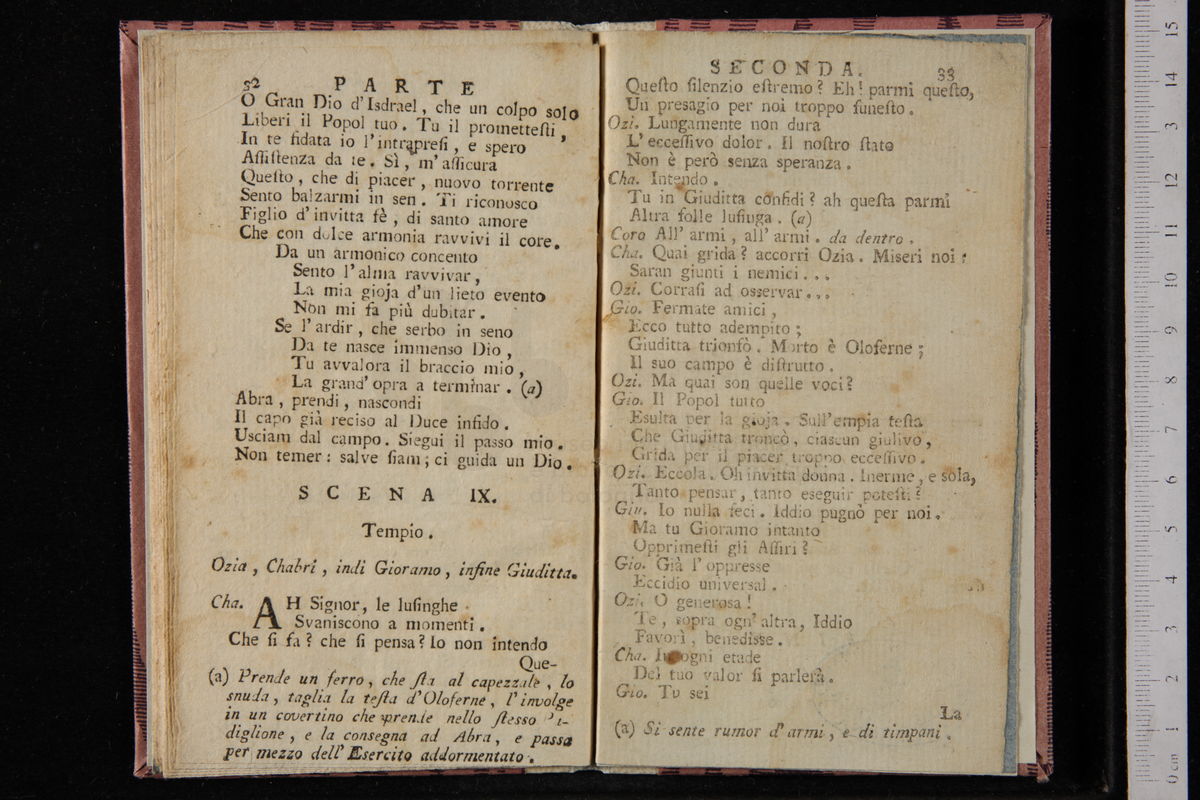 32 PARTE
O Gran Dio d'Isdrael, che un colpo solo
Liberi il Popol tuo. Tu il promettesti,
In te fidata io l'intrapresi, e spero
Assistenza da te. Sì, m'assicura
Questo, che di piacer, nuovo torrente
Sento balzarmi in sen. Ti riconosco
Figlio d'invitta fè, di santo amore
Che con dolce armonia ravvivi il core.
Da un armonico concento
Sento l'alma ravvivar,
La mia gioja d'un lieto evento
Non mi fa più dubitar.
Se l'ardir, che serbo in seno
Da te nasce immenso Dio,
Tu avvalora il braccio mio,
La grand'opra a terminar. (a)
Abra, prendi, nascondi
Il capo già reciso al Duce infido.
Usciam dal campo. Siegui il passo mio.
Non temer: salve siam; ci guida un Dio.
SCENA IX.
Tempio.
Ozia, Chabri, indi Gioramo, infine Giuditta.
Cha. AH Signor, le lusinghe
Svaniscono a momenti.
Che si fa? che si pensa? Io non intendo
Que-
(a) Prende un ferro, che sta al capezzale, lo
snuda, taglia la testa d'Oloferne, l'involge
in un covertino che prende nello stesso Pa-
diglione, e la consegna ad Abra, e passa
per mezzo dell'Esercito addormentato.
SECONDA. 33
Questo silenzio estremo? Eh! parmi questo,
Un presagio per noi troppo funesto.
Ozi. Lungamente non dura
L'eccessivo dolor. Il nostro stato
Non è però senza speranza.
Cha. Intendo.
Tu in Giuditta confidi? ah questa parmi
Altra folle lusinga. (a)
Coro All'armi, all'armi. da dentro.
Cha. Quai grida? accorri Ozia. Miseri noi!
Saran giunti i nemici...
Ozi. Corrasi ad osservar...
Gio. Fermate amici,
Ecco tutto adempito;
Giuditta trionfò. Morto è Oloferne;
Il suo campo è distrutto.
Ozi. Ma quai son quelle voci?
Gio. Il Popol tutto
Esulta per la gioja. Sull'empia testa
Che Giuditta troncò, ciascun giulivo,
Grida per il piacer troppo eccessivo.
Ozi. Eccola. Oh invitta donna. Inerme, e sola,
Tanto pensar, tanto eseguir potesti?
Giu. Io nulla feci. Iddio pugnò per noi.
Ma tu Gioramo intanto
Opprimesti gli Assiri?
Gio. Già l'oppresse
Eccidio universal.
Ozi. O generosa!
Te, sopra ogn'altra, Iddio
Favorì, benedisse.
Cha. In ogni etade
Del tuo valor si parlerà.
Gio. Tu sei
La
(a) Si sente rumor d'armi, e di timpani.
0 cm 1 2 3 4 5 6 7 8 9 10 11 12 13 14 15